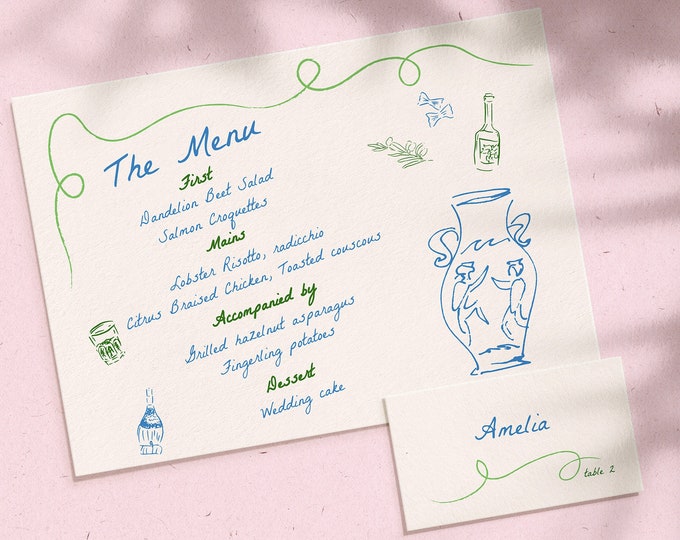 The Menu
First
Dandelion Beet Salad
Salmon Croquettes
Mains
Lobster Risotto, radicchio
Citrus Braised Chicken, Toasted couscous
Accompanied by
Grilled hazelnut asparagus
Fingerling potatoes
Dessert
Wedding cake
Amelia
table 2